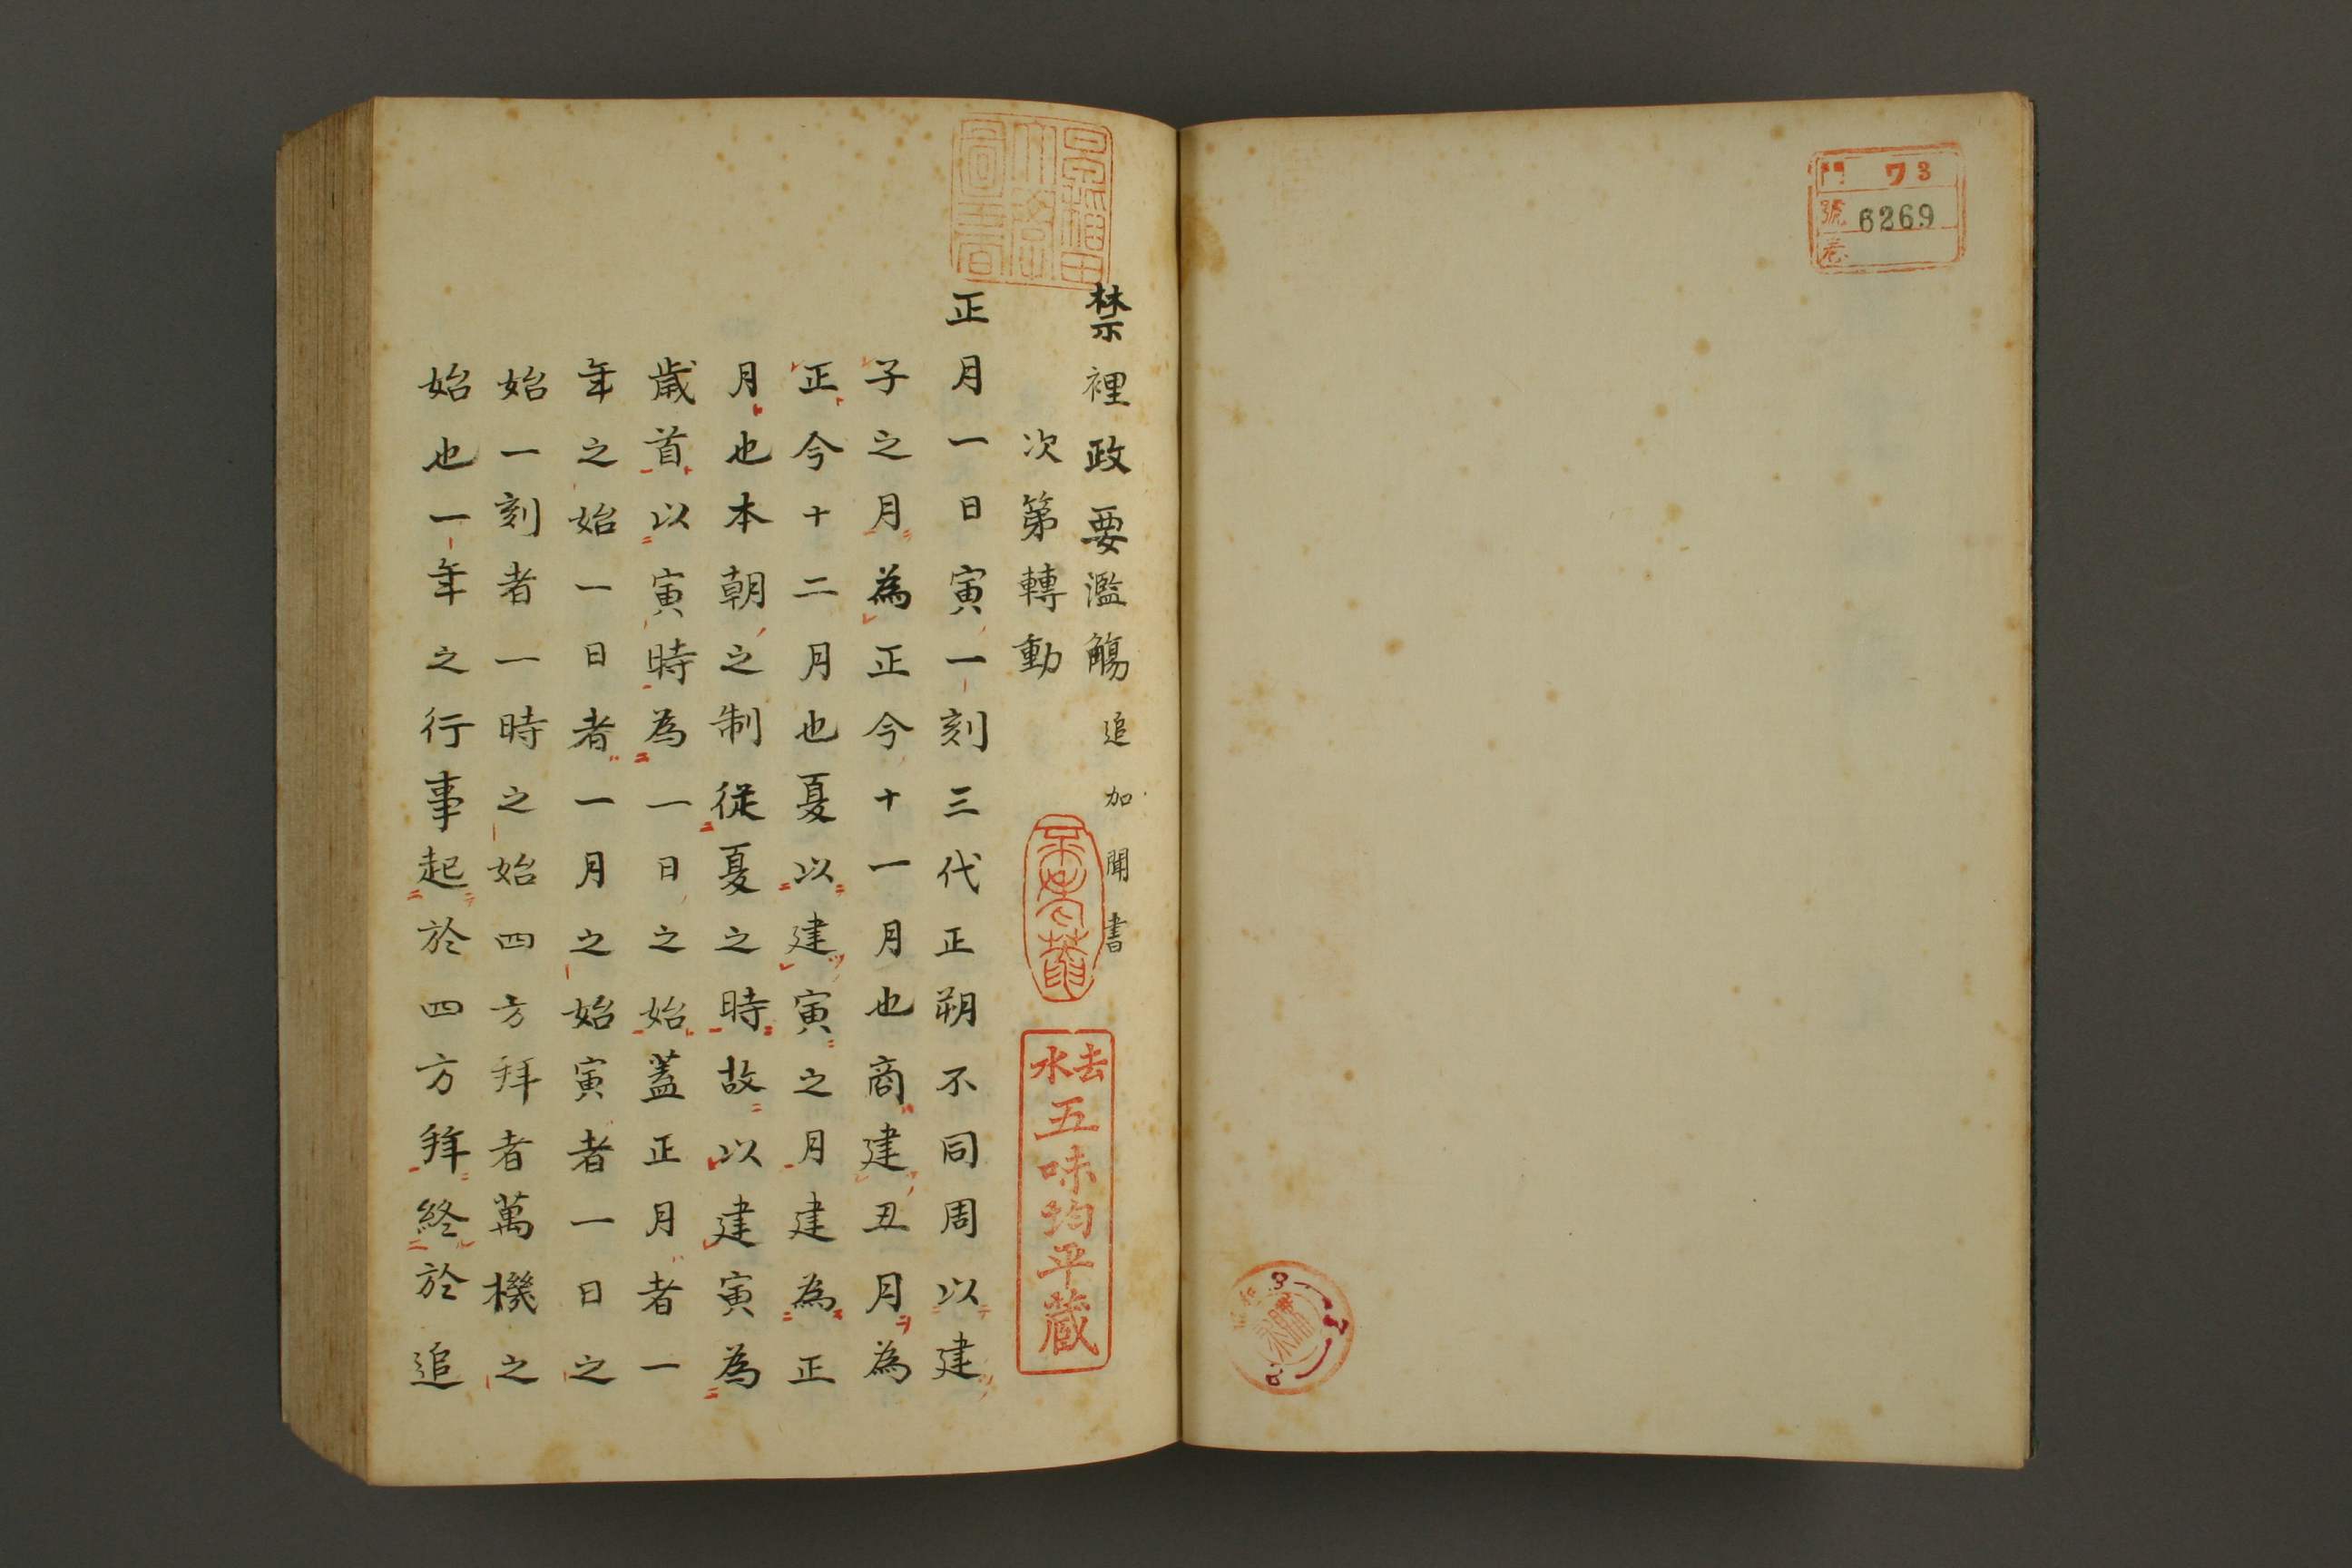 門 73
號 6269
卷
禁裡政要濫觴 追加聞書
次第轉動
正月一日寅一刻三代正朔不同周以建
子之月為正今十一月也商建丑月為
正今十二月也夏以建寅之月建為正
月也本朝之制従夏之時故以建寅為
歳首以寅時為一日之始蓋正月者一
年之始一日者一月之始寅者一日之
始一刻者一時之始四方拜者萬機之
始也一年之行事起於四方拜終於追
去水
五味均平蔵